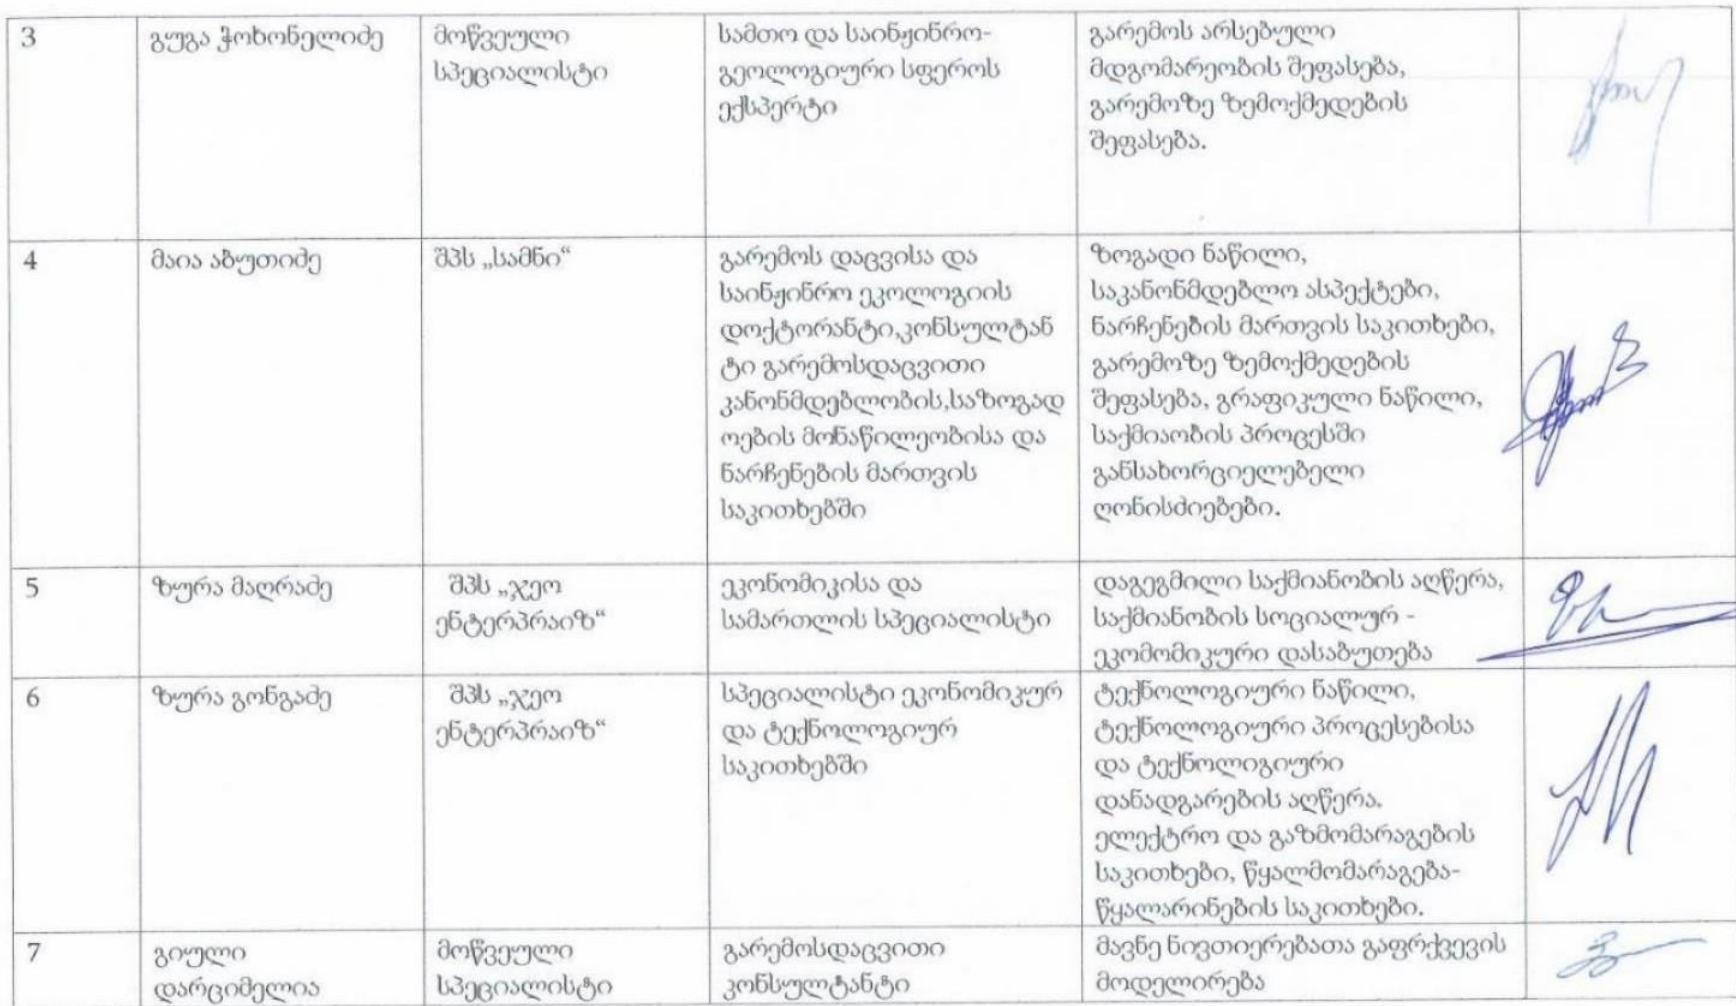 3
გუგა ჭოხონელიძე
მოწვეული
სპეციალისტი
სამთო და საინჟინრო-
გეოლოგიური სფეროს
ექსპერტი
გარემოს არსებული
მდგომარეობის შეფასება,
გარემოზე ზემოქმედების
შეფასება.
4
მაია აბუთიძე
შპს „სამნი“
გარემოს დაცვისა და
საინჟინრო ეკოლოგიის
დოქტორანტი,კონსულტან
ტი გარემოსდაცვითი
კანონმდებლობის,საზოგად
ოების მონაწილეობისა და
ნარჩენების მართვის
საკითხებში
ზოგადი ნაწილი,
საკანონმდებლო ასპექტები,
ნარჩენების მართვის საკითხები,
გარემოზე ზემოქმედების
შეფასება, გრაფიკული ნაწილი,
საქმიაობის პროცესში
განსახორციელებელი
ღონისძიებები.
5
ზურა მაღრაძე
შპს „ჯეო
ენტერპრაიზ“
ეკონომიკისა და
სამართლის სპეციალისტი
დაგეგმილი საქმიანობის აღწერა,
საქმიანობის სოციალურ -
ეკომომიკური დასაბუთება
6
ზურა გონგაძე
შპს „ჯეო
ენტერპრაიზ“
სპეციალისტი ეკონომიკურ
და ტექნოლოგიურ
საკითხებში
ტექნოლოგიური ნაწილი,
ტექნოლოგიური პროცესებისა
და ტექნოლიგიური
დანადგარების აღწერა.
ელექტრო და გაზმომარაგების
საკითხები, წყალმომარაგება-
წყალარინების საკითხები.
7
გიული
დარციმელია
მოწვეული
სპეციალისტი
გარემოსდაცვითი
კონსულტანტი
მავნე ნივთიერებათა გაფრქვევის
მოდელირება